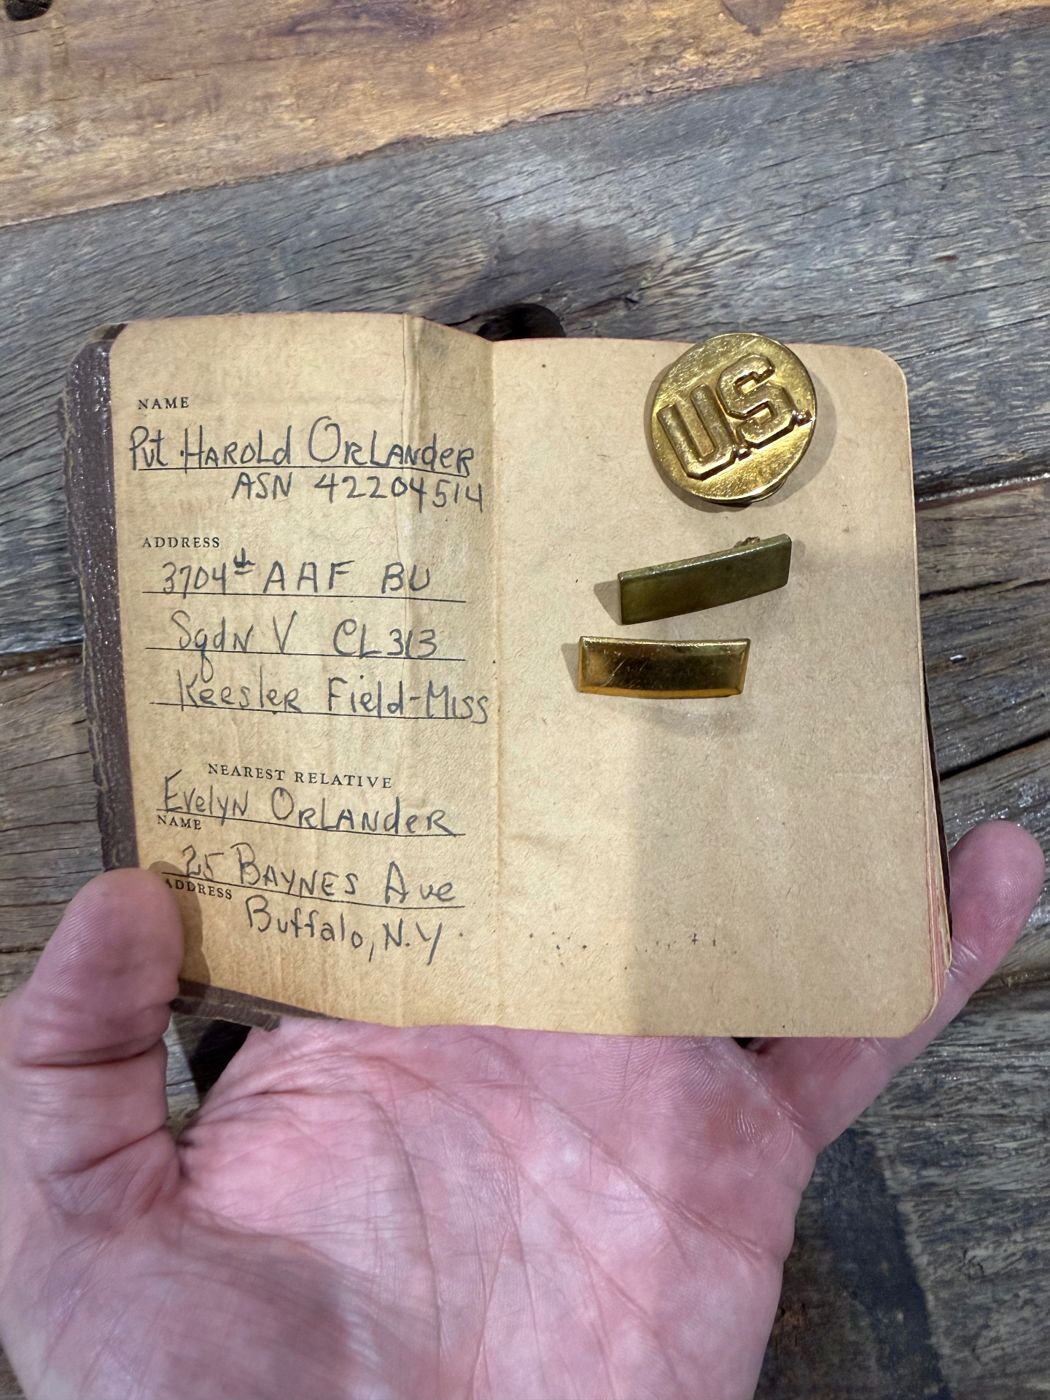 NAME
Pvt. Harold Orlander
ASN 42204514
ADDRESS
3704th AAF BU
Sqdn V CL313
Keesler Field-Miss
NEAREST RELATIVE
Evelyn Orlander
NAME
25 Baynes Ave
ADDRESS
Buffalo, N.Y.
U.S.